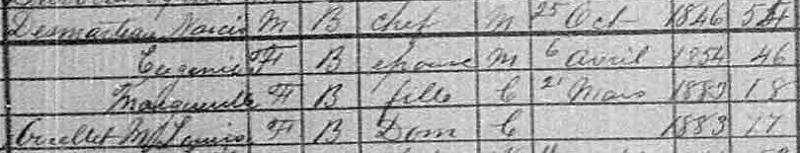 Desmarteau Narcis M B chef M 25 Oct 1846 54
Eugenie F B epouse M 6 Avril 1854 46
Marguerite F B fille C 21 Mars 1883 18
Ouellet M Louise F B Dom C 1883 17